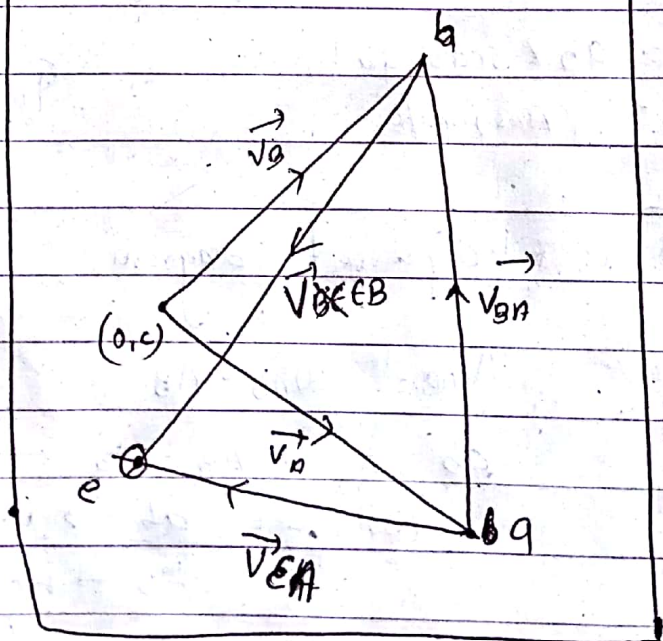 b
V_B
V_EB
V_BA
(o,c)
V_A
e
a
V_EA